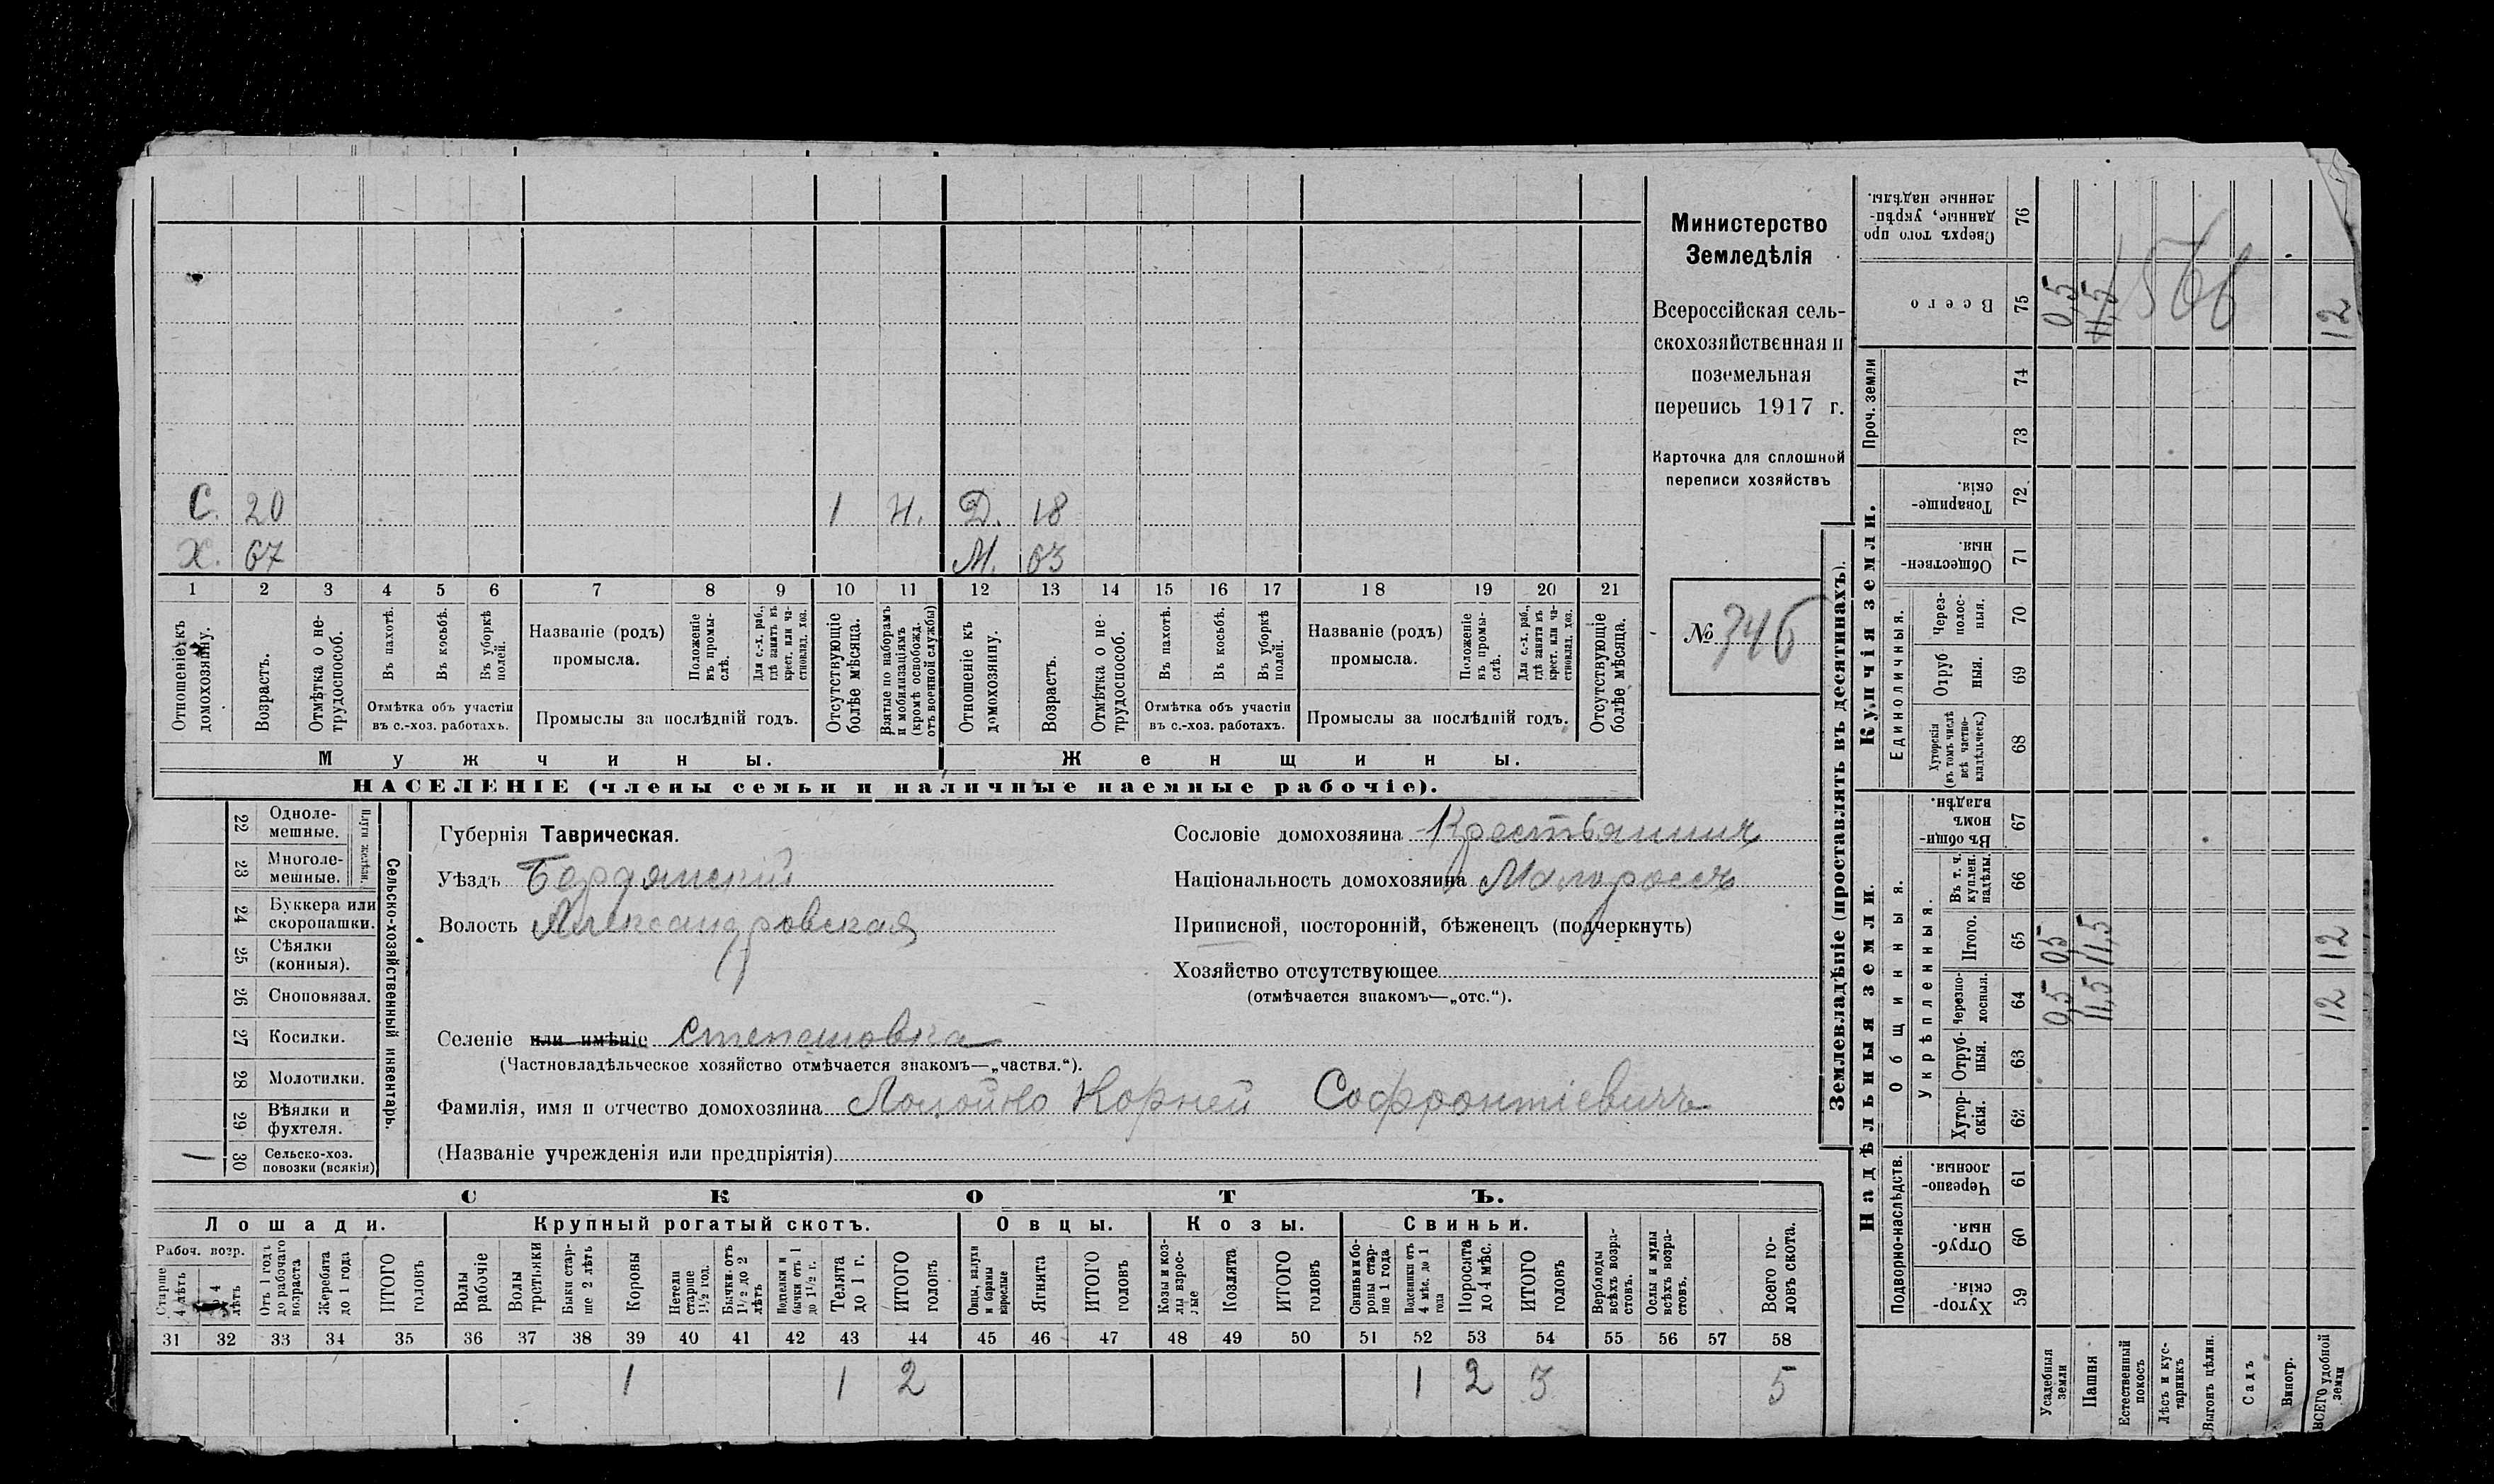 Министерство
Земледѣлія
Всероссійская сель-
скохозяйственная и
поземельная
перепись 1917 г.
Карточка для сплошной
переписи хозяйствъ
№ 346
С. 20 1 Н. Д. 18
Х. 67 М. 63
1 2 3 4 5 6 7 8 9 10 11 12 13 14 15 16 17 18 19 20 21
Отношеніе къ домохозяину.
Возрастъ.
Отмѣтка о не-трудоспособ.
Въ пахотѣ.
Въ косьбѣ.
Въ уборкѣ полей.
Отмѣтка объ участіи
въ с.-хоз. работахъ.
Названіе (родъ)
промысла.
Положеніе въ промы-слѣ.
Для с.-х. раб., гдѣ занятъ въ крест. или ча-стновлад. хоз.
Промыслы за послѣдній годъ.
Отсутствующіе болѣе мѣсяца.
Взятые по наборамъ и мобилизаціямъ (кромѣ освобожд. отъ военной службы)
Отношеніе къ домохозяину.
Возрастъ.
Отмѣтка о не-трудоспособ.
Въ пахотѣ.
Въ косьбѣ.
Въ уборкѣ полей.
Отмѣтка объ участіи
въ с.-хоз. работахъ.
Названіе (родъ)
промысла.
Положеніе въ промы-слѣ.
Для с.-х. раб., гдѣ занята въ крест. или ча-стновлад. хоз.
Промыслы за послѣдній годъ.
Отсутствующіе болѣе мѣсяца.
Мужчины.
Женщины.
НАСЕЛЕНІЕ (члены семьи и наличные наемные рабочіе).
22 Одноле-мешные.
23 Многоле-мешные.
Плуги желѣзн.
24 Буккера или скоропашки.
25 Сѣялки (конныя).
26 Сноповязал.
27 Косилки.
28 Молотилки.
29 Вѣялки и фухтеля.
1 30 Сельско-хоз. повозки (всякія)
Сельско-хозяйственный инвентарь.
Губернія Таврическая.
Уѣздъ Бердянскій
Волость Александровская
Сословіе домохозяина Крестьянинъ
Національность домохозяина Малороссъ
Приписной, посторонній, бѣженецъ (подчеркнуть)
Хозяйство отсутствующее
(отмѣчается знакомъ—„отс.“).
Селеніе или имѣніе Степановка
(Частновладѣльческое хозяйство отмѣчается знакомъ—„частвл.“).
Фамилія, имя и отчество домохозяина Корней Софронтіевичъ
(Названіе учрежденія или предпріятія)
СКОТЪ.
Лошади. Крупный рогатый скотъ. Овцы. Козы. Свиньи.
Рабоч. возр.
Старше 4 лѣтъ
4 лѣтъ
Отъ 1 года до рабочаго возраста
Жеребята до 1 года
ИТОГО головъ
Волы рабочіе
Волы третьяки
Быки стар-ше 2 лѣтъ
Коровы
Нетели старше 1½ год.
Бычки отъ 1½ до 2 лѣтъ
Нетелки и бычки отъ 1 до 1½ г.
Телята до 1 г.
ИТОГО головъ
Овцы, валухи и бараны взрослые
Ягнята
ИТОГО головъ
Козы и коз-лы взрос-лые
Козлята
ИТОГО головъ
Свиньи и бо-ровы стар-ше 1 года
Подсвинки отъ 4 мѣс. до 1 года
Поросята до 4 мѣс.
ИТОГО головъ
Верблюды всѣхъ возра-стовъ.
Ослы и мулы всѣхъ возра-стовъ.
Всего го-ловъ скота.
31 32 33 34 35 36 37 38 39 40 41 42 43 44 45 46 47 48 49 50 51 52 53 54 55 56 57 58
1 1 2 1 2 3 5
Землевладѣніе (проставлять въ десятинахъ).
Купчія земли.
Надѣльныя земли.
Сверхъ того про-данные, укрѣп-ленные надѣлы. 76
Всего 75 0,5 11,5 12
566
Проч. земли 74 73
Товарище-скія. 72
Обществен-ныя. 71
Единоличныя.
Через-полос-ныя. 70
Отруб-ныя. 69
Хуторскія (въ томъ числѣ всѣ частно-владѣльческ.) 68
Въ общин-номъ владѣн. 67
Общинныя.
Укрѣпленныя.
Въ т. ч. куплен. надѣлы. 66
Итого. 65 0,5 11,5 12
Черезпо-лосныя. 64 0,5 11,5 12
Отруб-ныя. 63
Хутор-скія. 62
Подворно-наслѣдств.
Черезпо-лосныя. 61
Отруб-ныя. 60
Хутор-скія. 59
Усадебныя земли
Пашня
Естественный покосъ
Лѣсъ и кус-тарникъ
Выгонъ цѣлин.
Садъ
Виногр.
ВСЕГО удобной земли